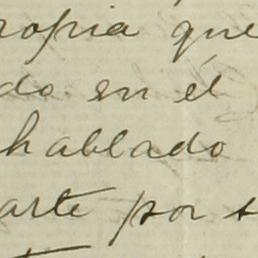 ropia que
do en él
hablado
arte por s